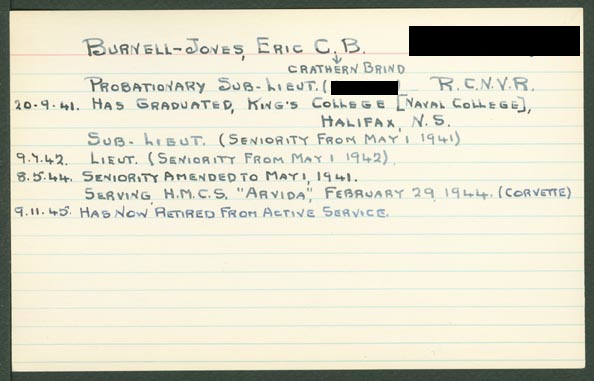 BURNELL-JONES, ERIC C. B.
CRATHERN BRIND
PROBATIONARY SUB-LIEUT. ( R.C.N.V.R.
20-9-41. HAS GRADUATED, KING'S COLLEGE [NAVAL COLLEGE],
HALIFAX, N.S.
SUB-LIEUT. (SENIORITY FROM MAY 1 1941)
9.7.42. LIEUT. (SENIORITY FROM MAY 1 1942).
8.5.44. SENIORITY AMENDED TO MAY 1, 1941.
SERVING, H.M.C.S. "ARVIDA", FEBRUARY 29, 1944. (CORVETTE)
9.11.45. HAS NOW RETIRED FROM ACTIVE SERVICE.